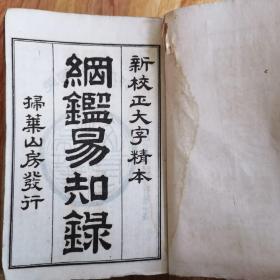 新校正大字精本
綱鑑易知錄
掃葉山房發行